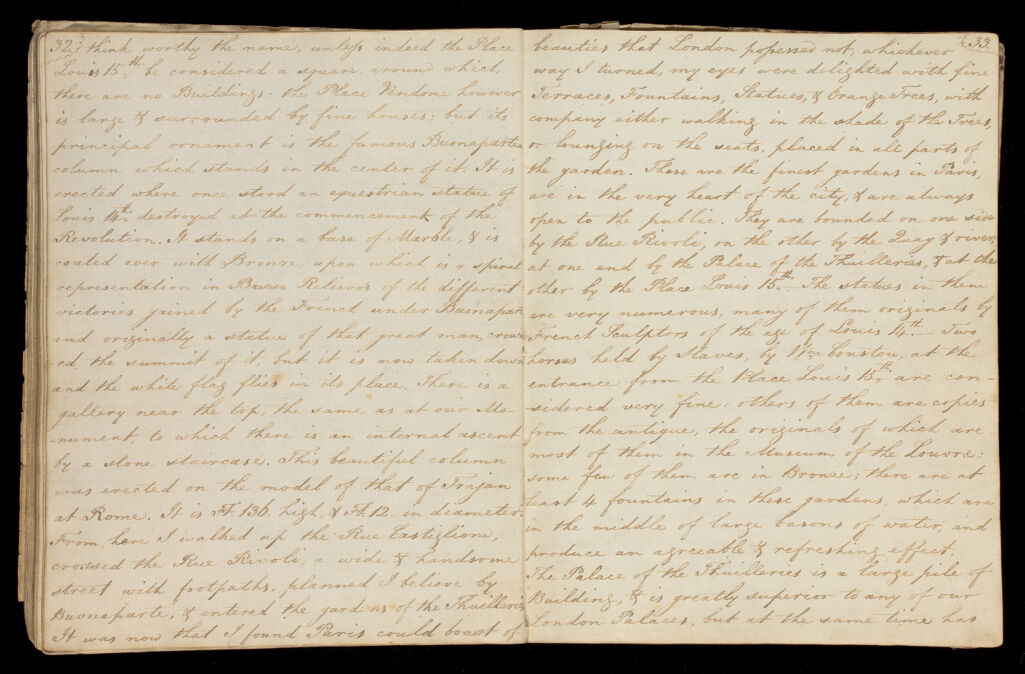 32 think worthy the name, unless indeed the Place
Louis 15th be considered a square, around which
there are no Buildings. the Place Vendome however
is large & surrounded by fine houses; but its
principal ornament is the famous Buonaparte
column which stands in the center of it. It is
erected where once stood an equestrian statue of
Louis 14th destroyed at the commencement of the
Revolution. It stands on a base of Marble, & is
coated over with Bronze, upon which is a spiral
representation in Basso Relievos of the different
victories gained by the French under Buonapart
and originally a statue of that great man, crown
ed, the summit of it, but it is now taken down
and the white flag flies in its place. There is a
gallery near the top, the same as at our Mo-
nument, to which there is an internal ascent
by a stone staircase. This beautiful column
was erected on the model of that of Trajan
at Rome. It is Ft. 136. high, & Ft. 12 in diameter.
From here I walked up the Rue Castiglione,
crossed the Rue Rivoli, a wide & handsome
street with footpaths, planned I believe by
Buonaparte, & entered the gardens of the Thuilleries
It was now that I found Paris could boast of
33.
beauties that London possessed not, whichever
way I turned, my eyes were delighted with fine
Terraces, Fountains, Statues, & Orange Trees, with
company either walking in the shade of the Trees,
or lounging on the seats, placed in all parts of
the garden. These are the finest gardens in Paris,
are in the very heart of the city, & are always
open to the public. They are bounded on one side
by the Rue Rivoli, on the other by the Quay & river,
at one end by the Palace of the Thuilleries, & at the
other by the Place Louis 15th. The statues in them
are very numerous, many of them originals by
French Sculptors of the age of Louis 14th — Two
horses held by Slaves, by Coustou, at the
entrance from the Place Louis 15th, are con-
-sidered very fine: others of them are copies
from the antique, the originals of which are
most of them in the Museum of the Louvre:
some few of them are in Bronze; there are at
least 4 fountains in these gardens, which are
in the middle of large basons of water, and
produce an agreeable & refreshing effect.
The Palace of the Thuilleries is a large pile of
Building, & is greatly superior to any of our
London Palaces, but at the same time has